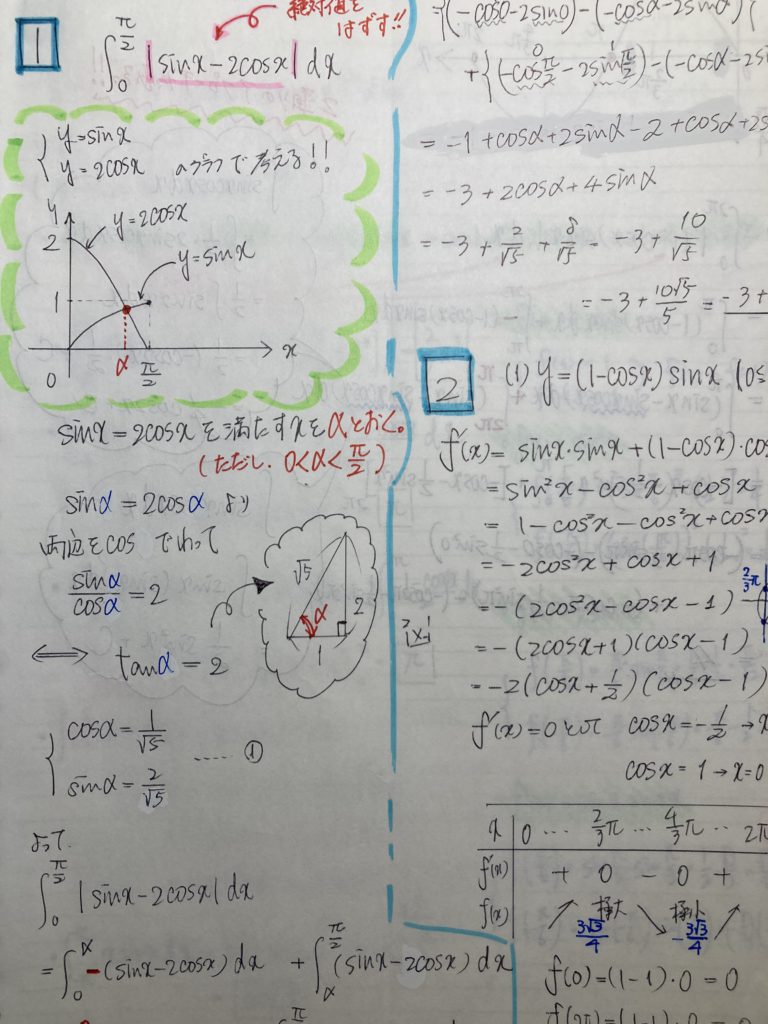 1
絶対値を
はずす!!
∫₀^{π/2} |sinx-2cosx| dx
{ y=sinx
y=2cosx のグラフで考える!!
y
2
y=2cosx
y=sinx
1
0 α π/2 x
sinx=2cosxを満たすxをαとおく。
(ただし、0<α<π/2)
sinα=2cosα より
両辺をcos でわって
sinα/cosα=2
⟺ tanα=2
√5 α 2 1
{ cosα=1/√5
sinα=2/√5 ---- ①
よって、
∫₀^{π/2} |sinx-2cosx| dx
=∫₀^α -(sinx-2cosx) dx + ∫_α^{π/2} (sinx-2cosx) dx
{(-cos0-2sin0)-(-cosα-2sinα)}
+{(-cosπ/2-2sinπ/2)-(-cosα-2si
0 1
=-1+cosα+2sinα-2+cosα+2s
=-3+2cosα+4sinα
=-3+2/√5+8/√5=-3+10/√5
=-3+10√5/5=-3+
2
(1) y=(1-cosx)sinx (0≤
f'(x)=sinx·sinx+(1-cosx)·cos
=sin²x-cos²x+cosx
=1-cos²x-cos²x+cosx
=-2cos²x+cosx+1
=-(2cos²x-cosx-1)
2/3π
=-(2cosx+1)(cosx-1)
=-2(cosx+1/2)(cosx-1)
f'(x)=0とって cosx=-1/2→x
cosx=1→x=0
x 0 … 2/3π … 4/3π … 2π
f'(x) + 0 - 0 +
f(x) ↗ 極大 3√3/4 ↘ 極小 -3√3/4 ↗
f(0)=(1-1)·0=0
f(2π)=(1-1)·0=0